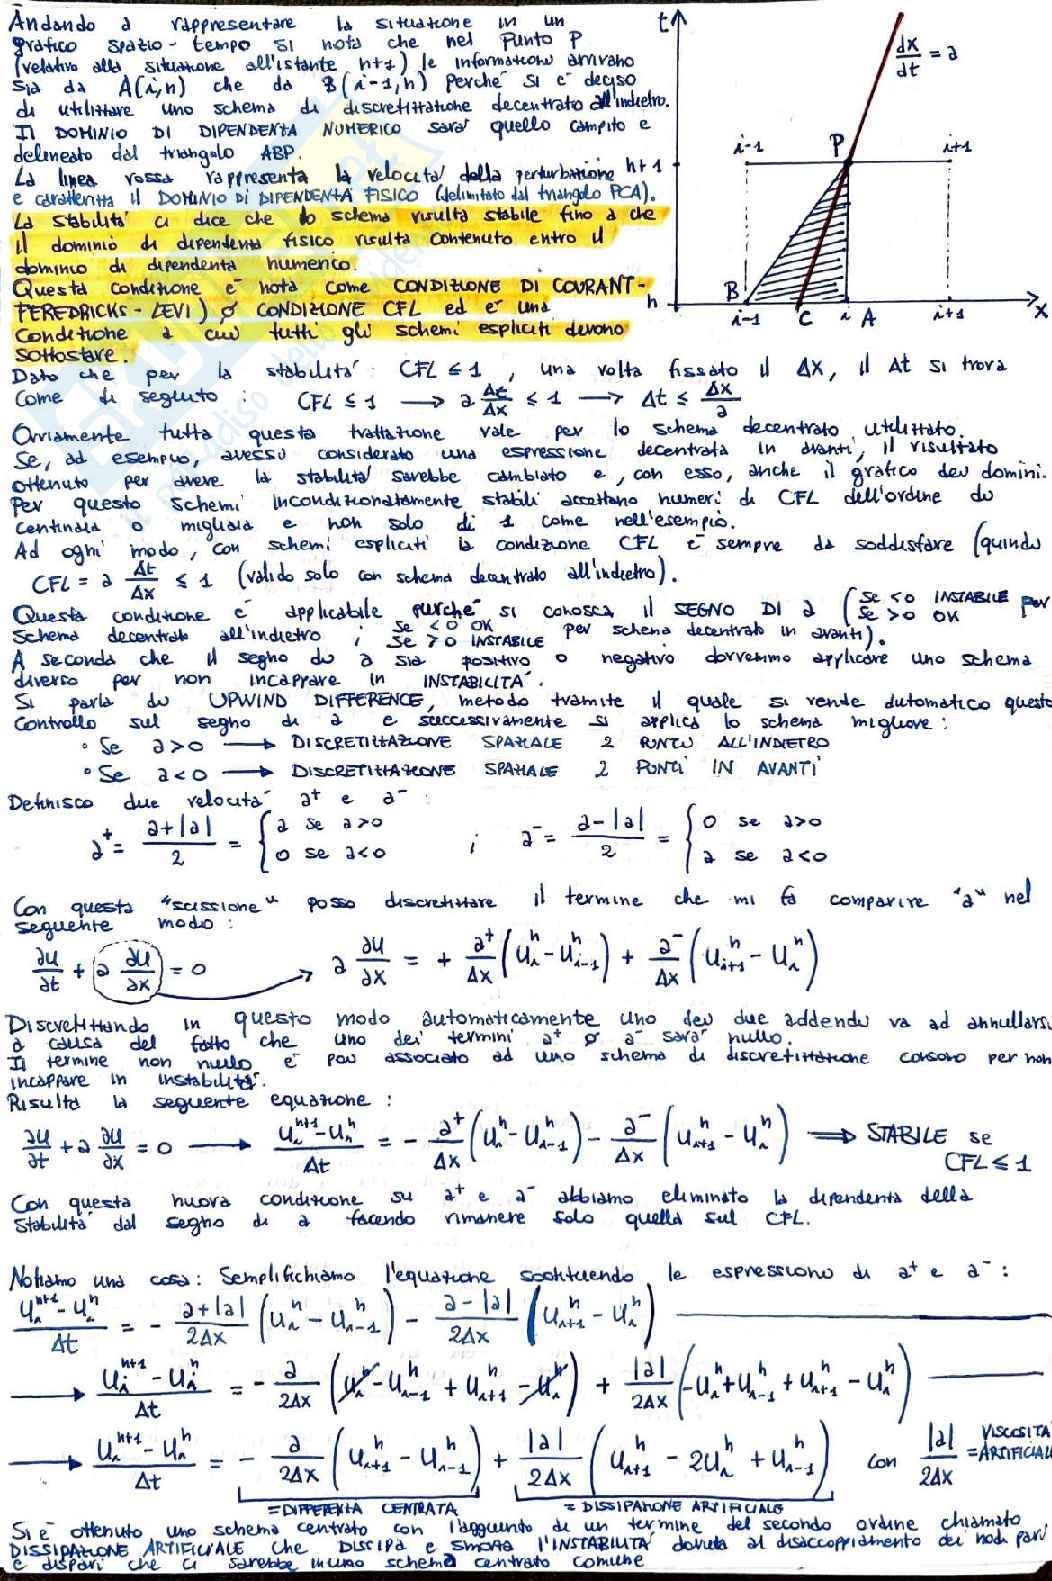 Andando a rappresentare la situazione in un
grafico spazio-tempo si nota che nel punto P
(relativo alla situazione all'istante n+1) le informazioni arrivano
sia da A(i,n) che da B(i-1,n) perché si è deciso
di utilizzare uno schema di discretizzazione decentrato all'indietro.
Il DOMINIO DI DIPENDENZA NUMERICO sarà quello campito e
delineato dal triangolo ABP.
La linea rossa rappresenta la velocità della perturbazione
e caratterizza il DOMINIO DI DIPENDENZA FISICO (delimitato dal triangolo PCA).
La stabilità ci dice che lo schema risulta stabile fino a che
il dominio di dipendenza fisico risulta contenuto entro il
dominio di dipendenza numerico.
Questa condizione è nota come CONDIZIONE DI COURANT-
FEREDRICKS-LEVI) o CONDIZIONE CFL ed è una
condizione a cui tutti gli schemi espliciti devono
sottostare.
t
dx/dt = a
i-1 P i+1
n+1
n B
i-1 C i A i+1 x
Dato che per la stabilità CFL ≤ 1, una volta fissato il Δx, il Δt si trova
come di seguito: CFL ≤ 1 → a Δt/Δx ≤ 1 → Δt ≤ Δx/a
Ovviamente tutta questa trattazione vale per lo schema decentrato utilizzato.
Se, ad esempio, avessi considerato una espressione decentrata in avanti, il risultato
ottenuto per avere la stabilità sarebbe cambiato e, con esso, anche il grafico dei domini.
Per questo schemi incondizionatamente stabili accettano numeri di CFL dell'ordine di
centinaia o migliaia e non solo di 1 come nell'esempio.
Ad ogni modo, con schemi espliciti la condizione CFL è sempre da soddisfare (quindi
CFL = a Δt/Δx ≤ 1 (valido solo con schema decentrato all'indietro).
Questa condizione è applicabile purché si conosca il SEGNO DI a (se <0 INSTABILE se >0 OK per
schema decentrato all'indietro; se <0 OK se >0 INSTABILE per schema decentrato in avanti).
A seconda che il segno di a sia positivo o negativo dovremmo applicare uno schema
diverso per non incappare in INSTABILITÀ.
Si parla di UPWIND DIFFERENCE, metodo tramite il quale si rende automatico questo
controllo sul segno di a e successivamente si applica lo schema migliore:
• Se a>0 → DISCRETIZZAZIONE SPAZIALE 2 PUNTI ALL'INDIETRO
• Se a<0 → DISCRETIZZAZIONE SPAZIALE 2 PUNTI IN AVANTI
Definisco due velocità a⁺ e a⁻:
a⁺ = (a+|a|)/2 = { a se a>0 0 se a<0 ; a⁻ = (a-|a|)/2 = { 0 se a>0 a se a<0
Con questa "scissione" posso discretizzare il termine che mi fa comparire "a" nel
seguente modo:
∂u/∂t + a ∂u/∂x = 0 → a ∂u/∂x = + a⁺/Δx (u_i^n - u_{i-1}^n) + a⁻/Δx (u_{i+1}^n - u_i^n)
Discretizzando in questo modo automaticamente uno dei due addendi va ad annullarsi
a causa del fatto che uno dei termini a⁺ o a⁻ sarà nullo.
Il termine non nullo è poi associato ad uno schema di discretizzazione consono per non
incappare in instabilità.
Risulta la seguente equazione:
∂u/∂t + a ∂u/∂x = 0 → (u_i^{n+1} - u_i^n)/Δt = - a⁺/Δx (u_i^n - u_{i-1}^n) - a⁻/Δx (u_{i+1}^n - u_i^n) ⟹ STABILE se
CFL ≤ 1
Con questa nuova condizione su a⁺ e a⁻ abbiamo eliminato la dipendenza della
stabilità dal segno di a facendo rimanere solo quella sul CFL.
Notiamo una cosa: Semplifichiamo l'equazione sostituendo le espressioni di a⁺ e a⁻:
(u_i^{n+1} - u_i^n)/Δt = - (a+|a|)/2Δx (u_i^n - u_{i-1}^n) - (a-|a|)/2Δx (u_{i+1}^n - u_i^n)
→ (u_i^{n+1} - u_i^n)/Δt = - a/2Δx (u_i^n - u_{i-1}^n + u_{i+1}^n - u_i^n) + |a|/2Δx (-u_i^n + u_{i-1}^n + u_{i+1}^n - u_i^n)
→ (u_i^{n+1} - u_i^n)/Δt = - a/2Δx (u_{i+1}^n - u_{i-1}^n) + |a|/2Δx (u_{i+1}^n - 2u_i^n + u_{i-1}^n) con |a|/2Δx = VISCOSITÀ ARTIFICIALE
=DIFFERENZA CENTRATA = DISSIPAZIONE ARTIFICIALE
Si è ottenuto uno schema centrato con l'aggiunta di un termine del secondo ordine chiamato
DISSIPAZIONE ARTIFICIALE che DISSIPA e SMORZA l'INSTABILITÀ dovuta al disaccoppiamento dei nodi pari
e dispari che ci sarebbe in uno schema centrato comune